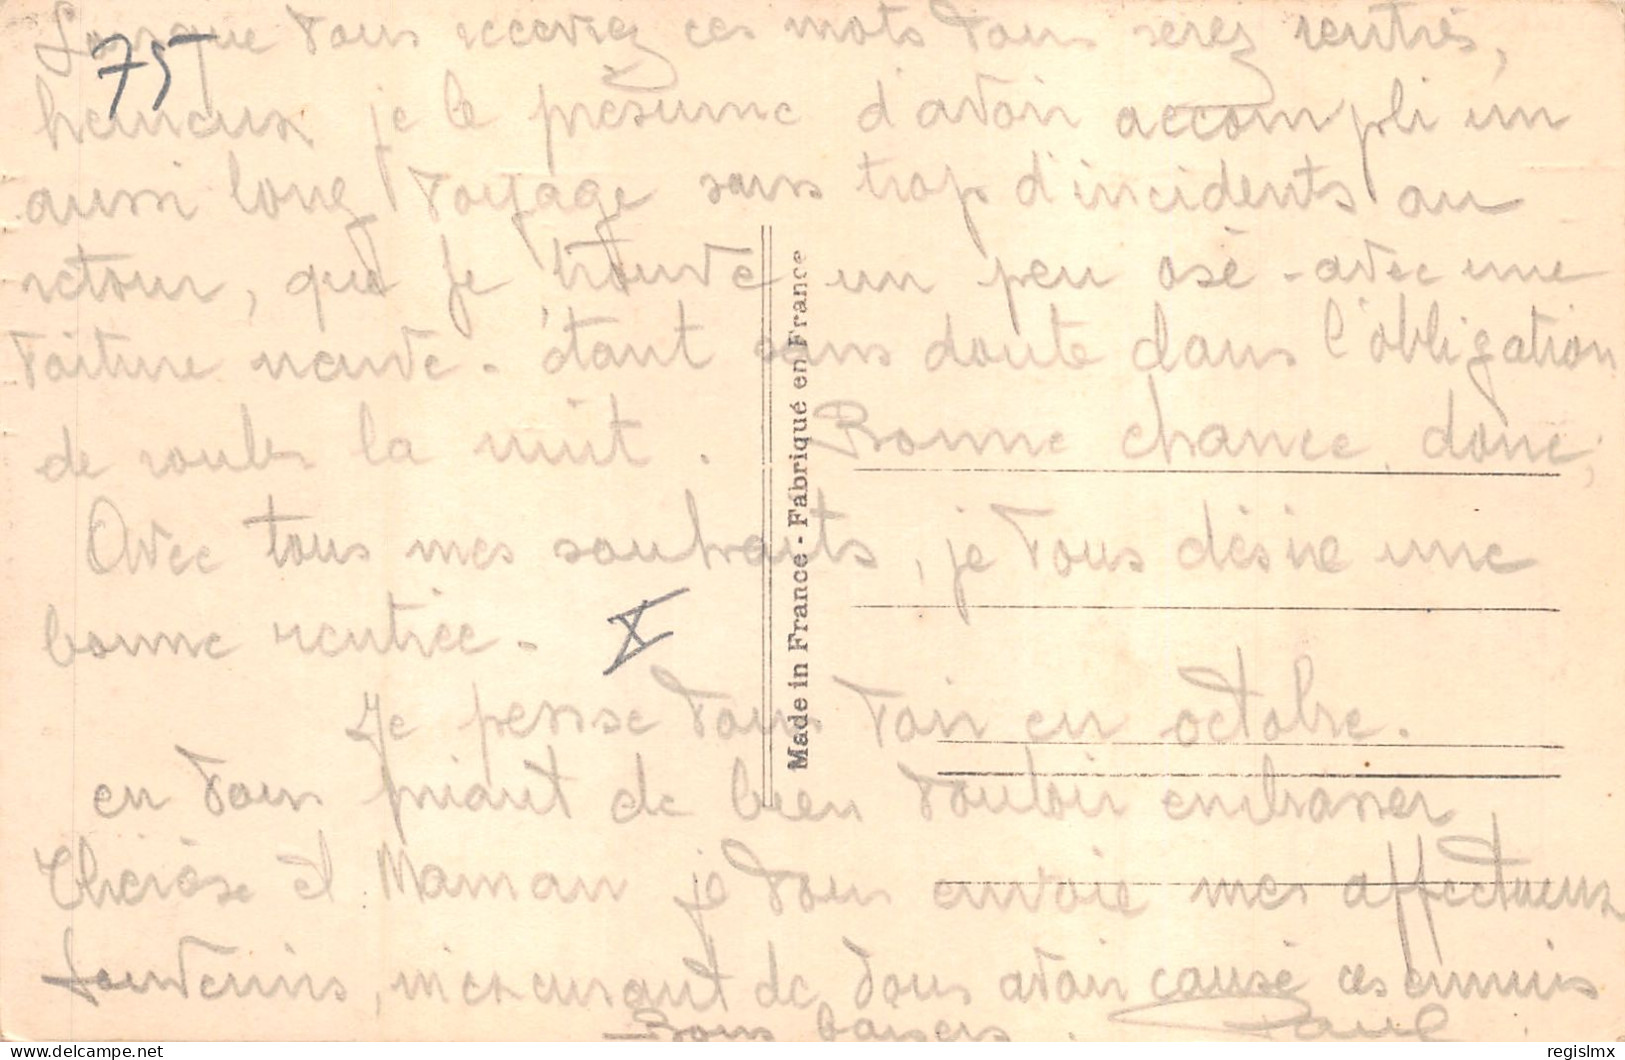 Lorsque vous recevrez ces mots vous serez rentrés,
75
heureux je le présume d'avoir accompli un
aussi long voyage sans trop d'incidents au
retour, que je trouve un peu osé - avec une
voiture neuve - étant sans doute dans l'obligation
de rouler la nuit. Bonne chance, donc,
Avec tous mes souhaits, je vous désire une
bonne rentrée -
X
Je pense vous voir en octobre.
en vous priant de bien vouloir embrasser
Thérèse et Maman je vous envoie mes affectueux
souvenirs, m'excusant de vous avoir causé ces ennuis
Bons baisers. Paul
Made in France - Fabriqué en France
regislmx